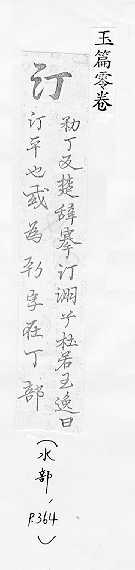 玉篇零卷
汀
勑丁反楚辭搴汀洲兮杜若王逸曰
汀平也或為字在丁部
(水部, P.364)